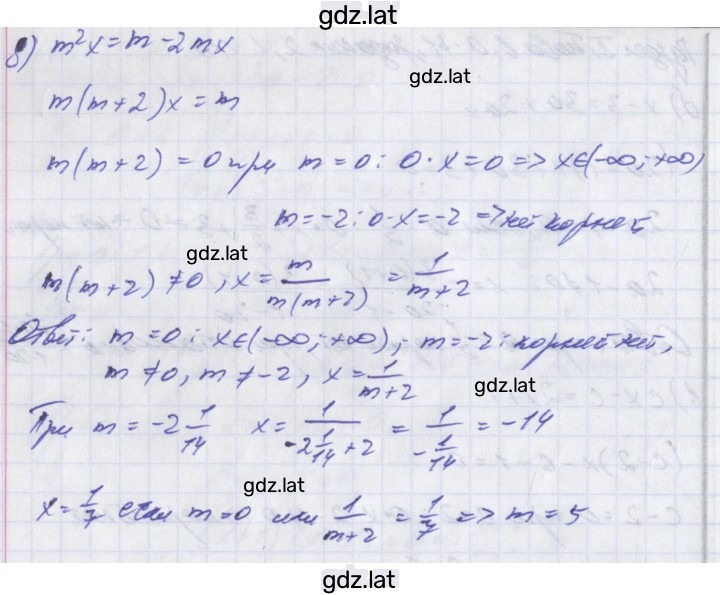 gdz.lat
в) m²x = m - 2mx
gdz.lat
m(m+2)x = m
m(m+2) = 0 при m = 0: 0·x = 0 => x∈(-∞;+∞)
m = -2: 0·x = -2 => нет корней,
gdz.lat
m(m+2) ≠ 0, x = m/(m(m+2)) = 1/(m+2)
Ответ: m = 0: x∈(-∞;+∞); m = -2: корней нет,
m ≠ 0, m ≠ -2, x = 1/(m+2)
gdz.lat
При m = -2 1/14 x = 1/(-2 1/14 + 2) = 1/(-1/14) = -14
gdz.lat
x = 1/7 если m = 0 или 1/(m+2) = 1/7 => m = 5
gdz.lat